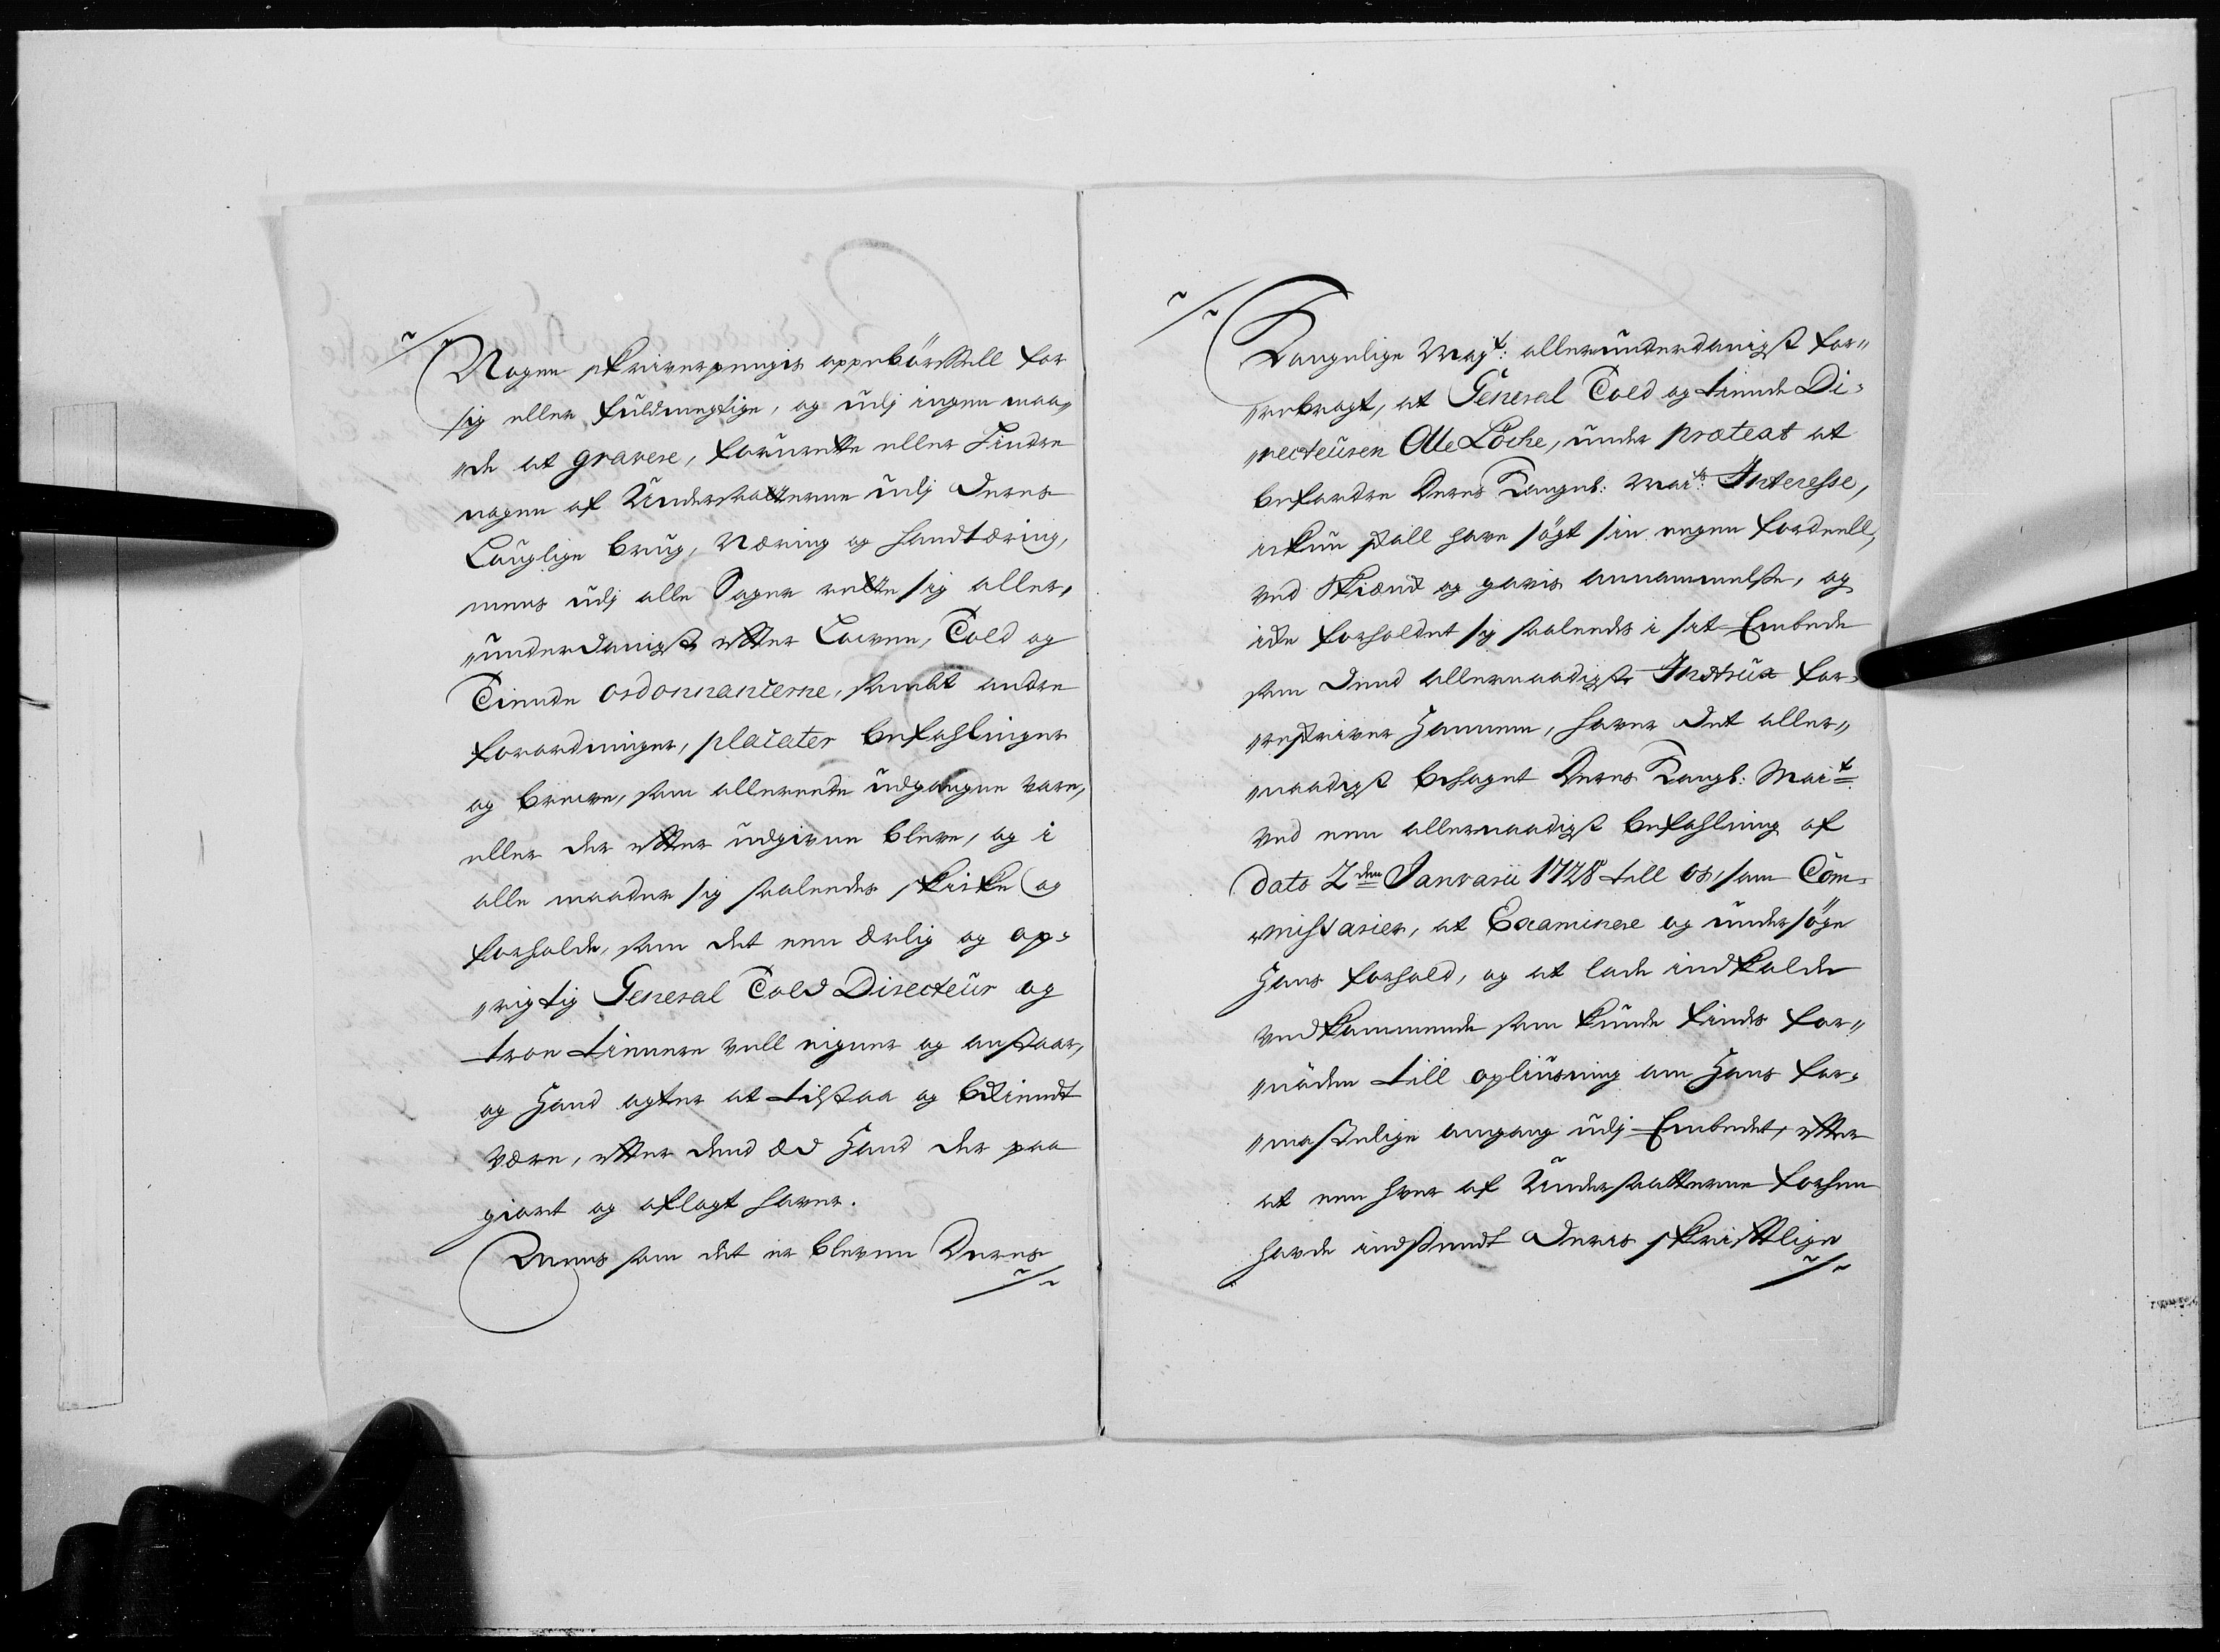 Nogen skriverpengis oppebörssell for
sig eller fuldmegtige, og udj ingen maa„
„de at gravere, forurette eller hindre
nogen af Undersaatterne udj deres
Lauglige brug, Næring og handtæring,
mens udj alle Sager rette sig aller„
„underdanigst efter Lowen, Told og
Tiende ordonnancerne, sambt andre
forordninger, placater befahlinger
og brewe, som allereede udgangne vare,
eller der efter udgivne bleve, og i
alle maader sig saaleedes skicke og
forholde, som det een ærlig og op„
„rigtig General Told Directeur og
troe tienere well eigner og anstaar,
og hand agter at tilstaa og bekiendt
være, efter dend æd hand der paa
giort og aflagt haver.
Mens som det er bleven Deres
Kongelige Mayt: allerunderdanigst for„
„rebragt, at General Told og tiende Di„
„recteuren Olle Löche, under prætext at
befordre Deres Kongel: Maits: Interesse,
ickun skall have sögt sin eegen fordeell,
ved Skienk og gavis annammelse, og
icke forholdet sig saaleedes i sit Embede
som dend allernaadigste Instrux for„
„reskriver hannem, haver det aller„
„naadigst behaget Deres Kongl: Mait
ved een allernaadigst befahlning af
dato 2den Januarii 1728 till os, som Com„
„missarier, at Examinere og undersöge
hans forhold, og at lade indkalde
vedkommende som kunde findes for„
„nöden till opliusning om hans for„
„mastelige omgang udj Embedet, efter
at een hver af Undersaatterne forhen
havde indsendt deres skrifftlige